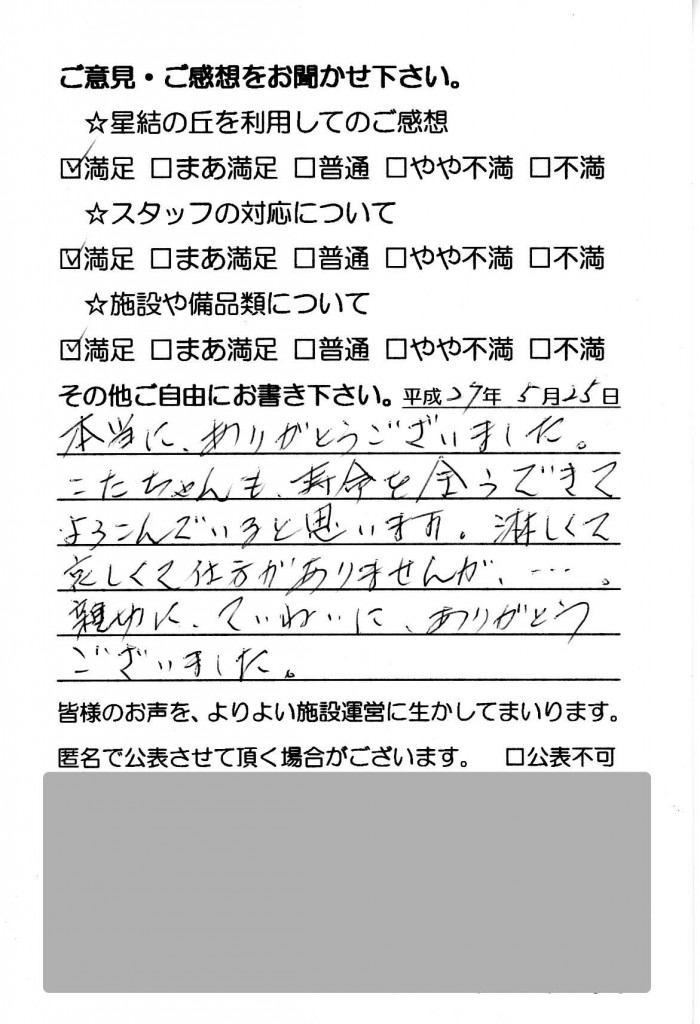 ご意見・ご感想をお聞かせ下さい。
☆星結の丘を利用してのご感想
☑満足 □まあ満足 □普通 □やや不満 □不満
☆スタッフの対応について
☑満足 □まあ満足 □普通 □やや不満 □不満
☆施設や備品類について
☑満足 □まあ満足 □普通 □やや不満 □不満
その他ご自由にお書き下さい。平成27年 5月25日
本当に、ありがとうございました。
こたちゃんも、寿命を全うできて
よろこんでいると思います。淋しくて
哀しくて仕方がありませんが、…。
親切に、ていねいに、ありがとう
ございました。
皆様のお声を、よりよい施設運営に生かしてまいります。
匿名で公表させて頂く場合がございます。 □公表不可